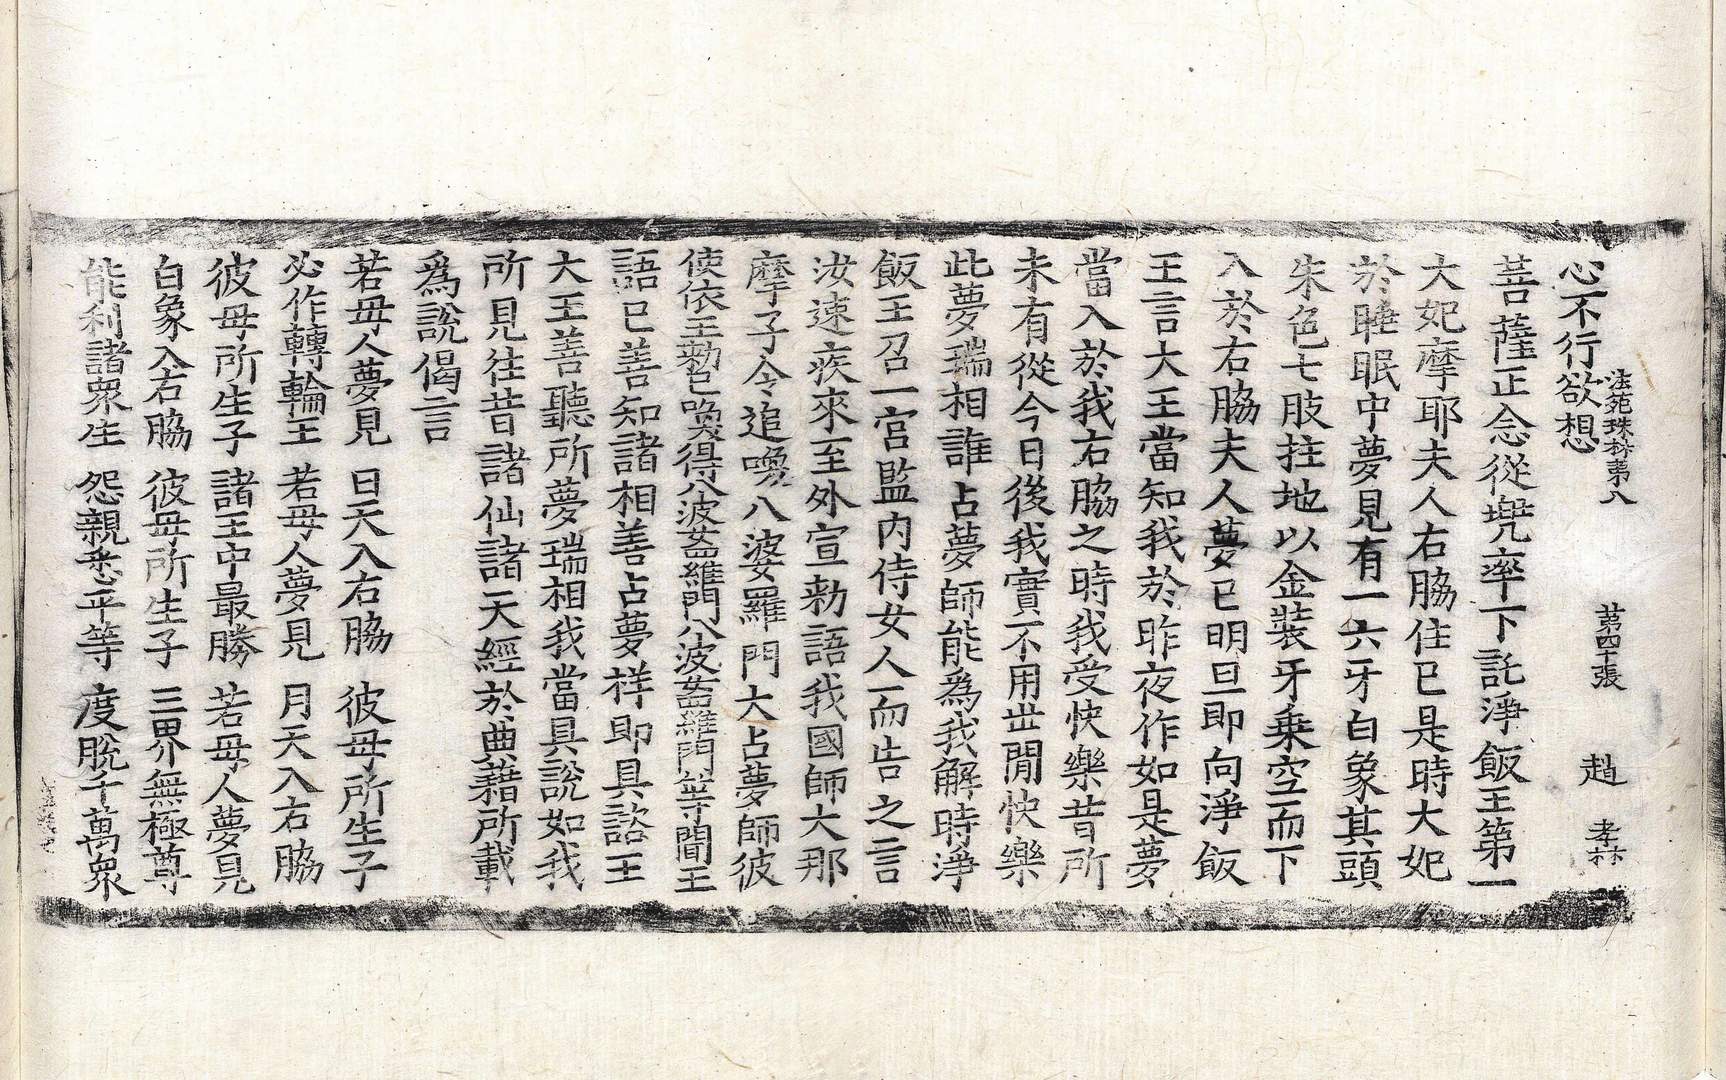 法苑珠林第八 第四十張 趙 孝林
心不行欲想
菩薩正念從兜率下託淨飯王第一
大妃摩耶夫人右脇住已是時大妃
於睡眠中夢見有一六牙白象其頭
朱色七肢拄地以金裝牙乗空而下
入於右脇夫人夢已明旦即向淨飯
王言大王當知我於昨夜作如是夢
當入於我右脇之時我受快樂昔所
未有從今日後我實不用世閒快樂
此夢瑞相誰占夢師能為我解時淨
飯王召一宮監內侍女人而告之言
汝速疾來至外宣勑語我國師大那
摩子令追喚八婆羅門大占夢師彼
使依王勑已喚得八婆羅門八婆羅門等聞王
語已善知諸相善占夢祥即具諮王
大王善聽所夢瑞相我當具說如我
所見往昔諸仙諸天經於典籍所載
為說偈言
若母人夢見 日天入右脇 彼母所生子
必作轉輪王 若母人夢見 月天入右脇
彼母所生子 諸王中最勝 若母人夢見
白象入右脇 彼母所生子 三界無極尊
能利諸衆生 怨親悉平等 度脫千萬衆